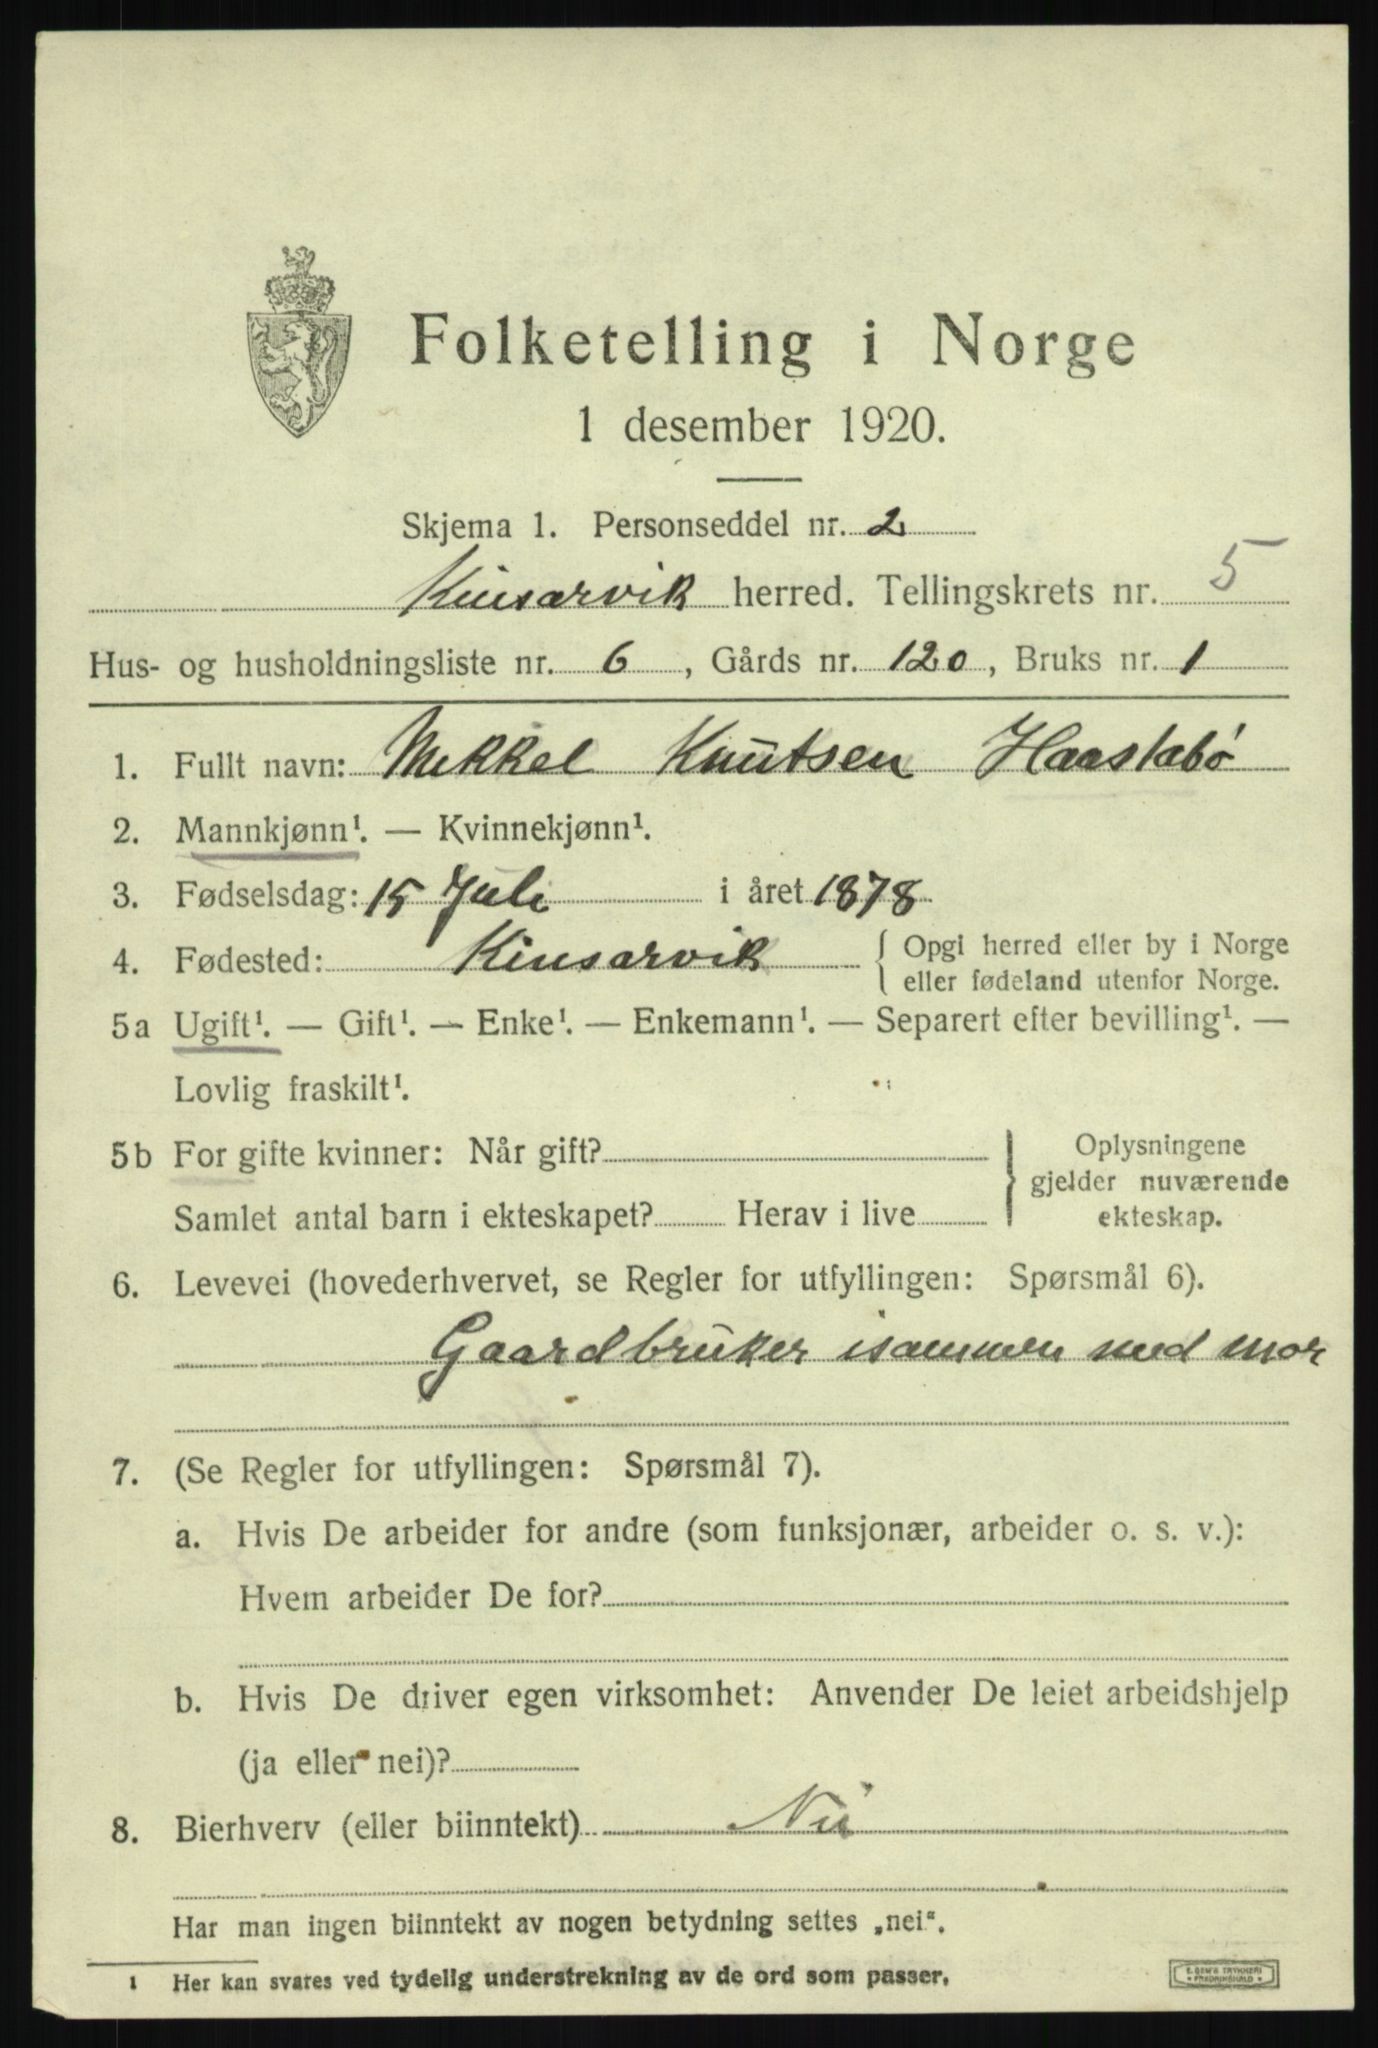 Folketelling i Norge
1 desember 1920.
Skjema 1. Personseddel nr. 2
Kinsarvik herred. Tellingskrets nr. 5
Hus- og husholdningsliste nr. 6, Gårds nr. 120, Bruks nr. 1
1. Fullt navn: Mekkel Knutsen Haastabø
2. Mannkjønn¹. — Kvinnekjønn¹.
3. Fødselsdag: 15 Juli i året 1878
4. Fødested: Kinsarvik { Opgi herred eller by i Norge
eller fødeland utenfor Norge.
5a Ugift¹. — Gift¹. — Enke¹. — Enkemann¹. — Separert efter bevilling¹. —
Lovlig fraskilt¹.
5b For gifte kvinner: Når gift?
Samlet antal barn i ekteskapet? Herav i live
} Oplysningene
gjelder nuværende
ekteskap.
6. Levevei (hovederhvervet, se Regler for utfyllingen: Spørsmål 6).
Gaardbruker isammen med mor
7. (Se Regler for utfyllingen: Spørsmål 7).
a. Hvis De arbeider for andre (som funksjonær, arbeider o. s. v.):
Hvem arbeider De for?
b. Hvis De driver egen virksomhet: Anvender De leiet arbeidshjelp
(ja eller nei)?
8. Bierhverv (eller biinntekt) Nei
Har man ingen biinntekt av nogen betydning settes „nei".
1 Her kan svares ved tydelig understrekning av de ord som passer.
E. SEM'S TRYKKERI
FREDRIKSHALD